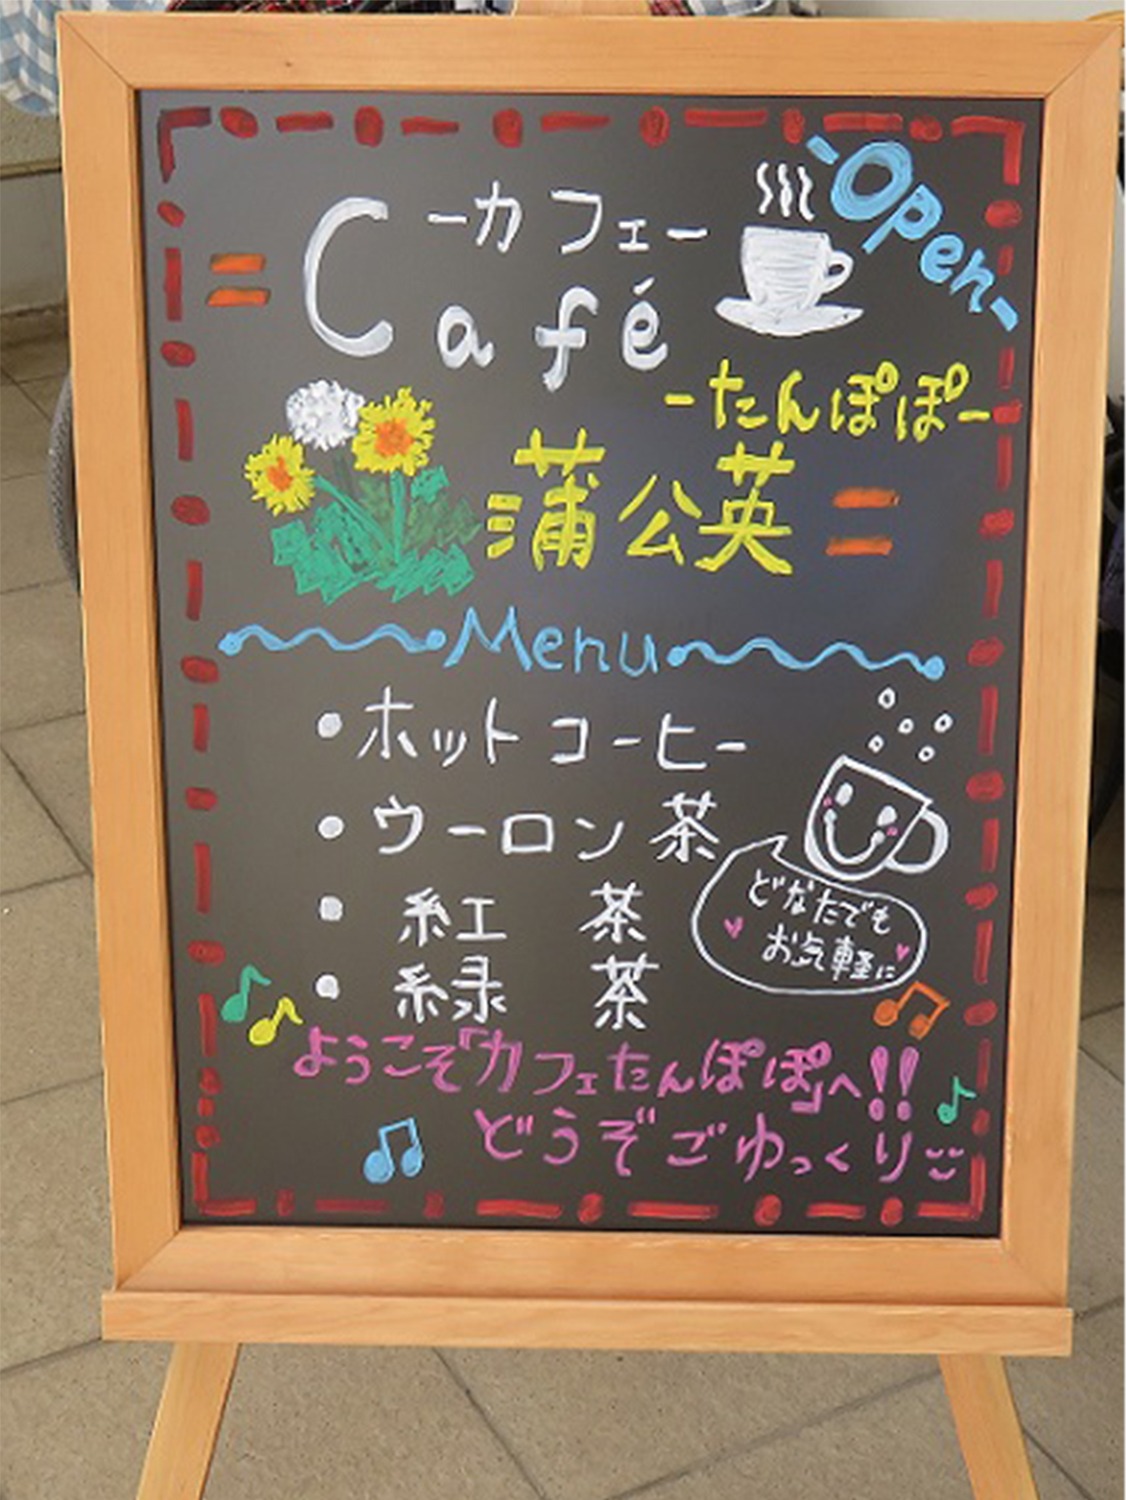 -Open-
-カフェ-
Café
-たんぽぽ-
=蒲公英=
Menu
・ホットコーヒー
・ウーロン茶
・紅　茶
・緑　茶
どなたでも
お気軽に
ようこそ「カフェたんぽぽ」へ!!
どうぞごゆっくり